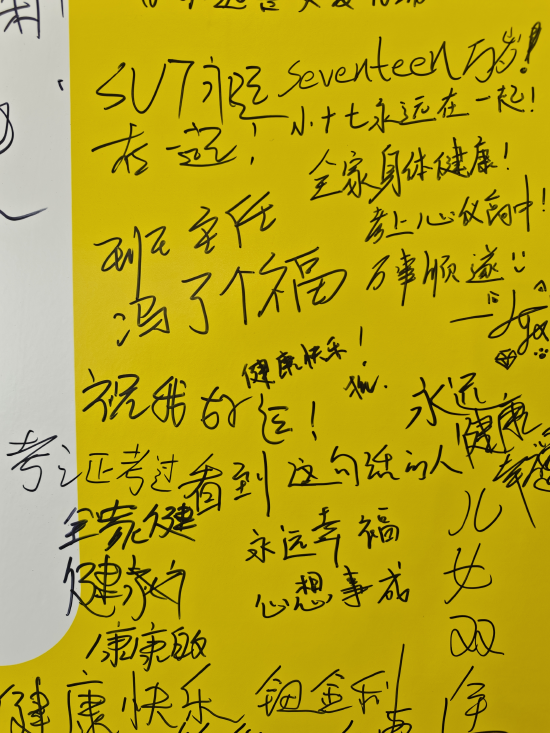 SVT永远 seventeen万岁!
在一起!
小十七永远在一起!
全家身体健康!
考上心仪高中!
万事顺遂
班主任
冯了个福
健康快乐!
祝我好运!
永远
健康
幸福
考证考过
看到这句话的人
永远幸福
心想事成
全家健
健康
康康
儿
女
双
全
健康快乐